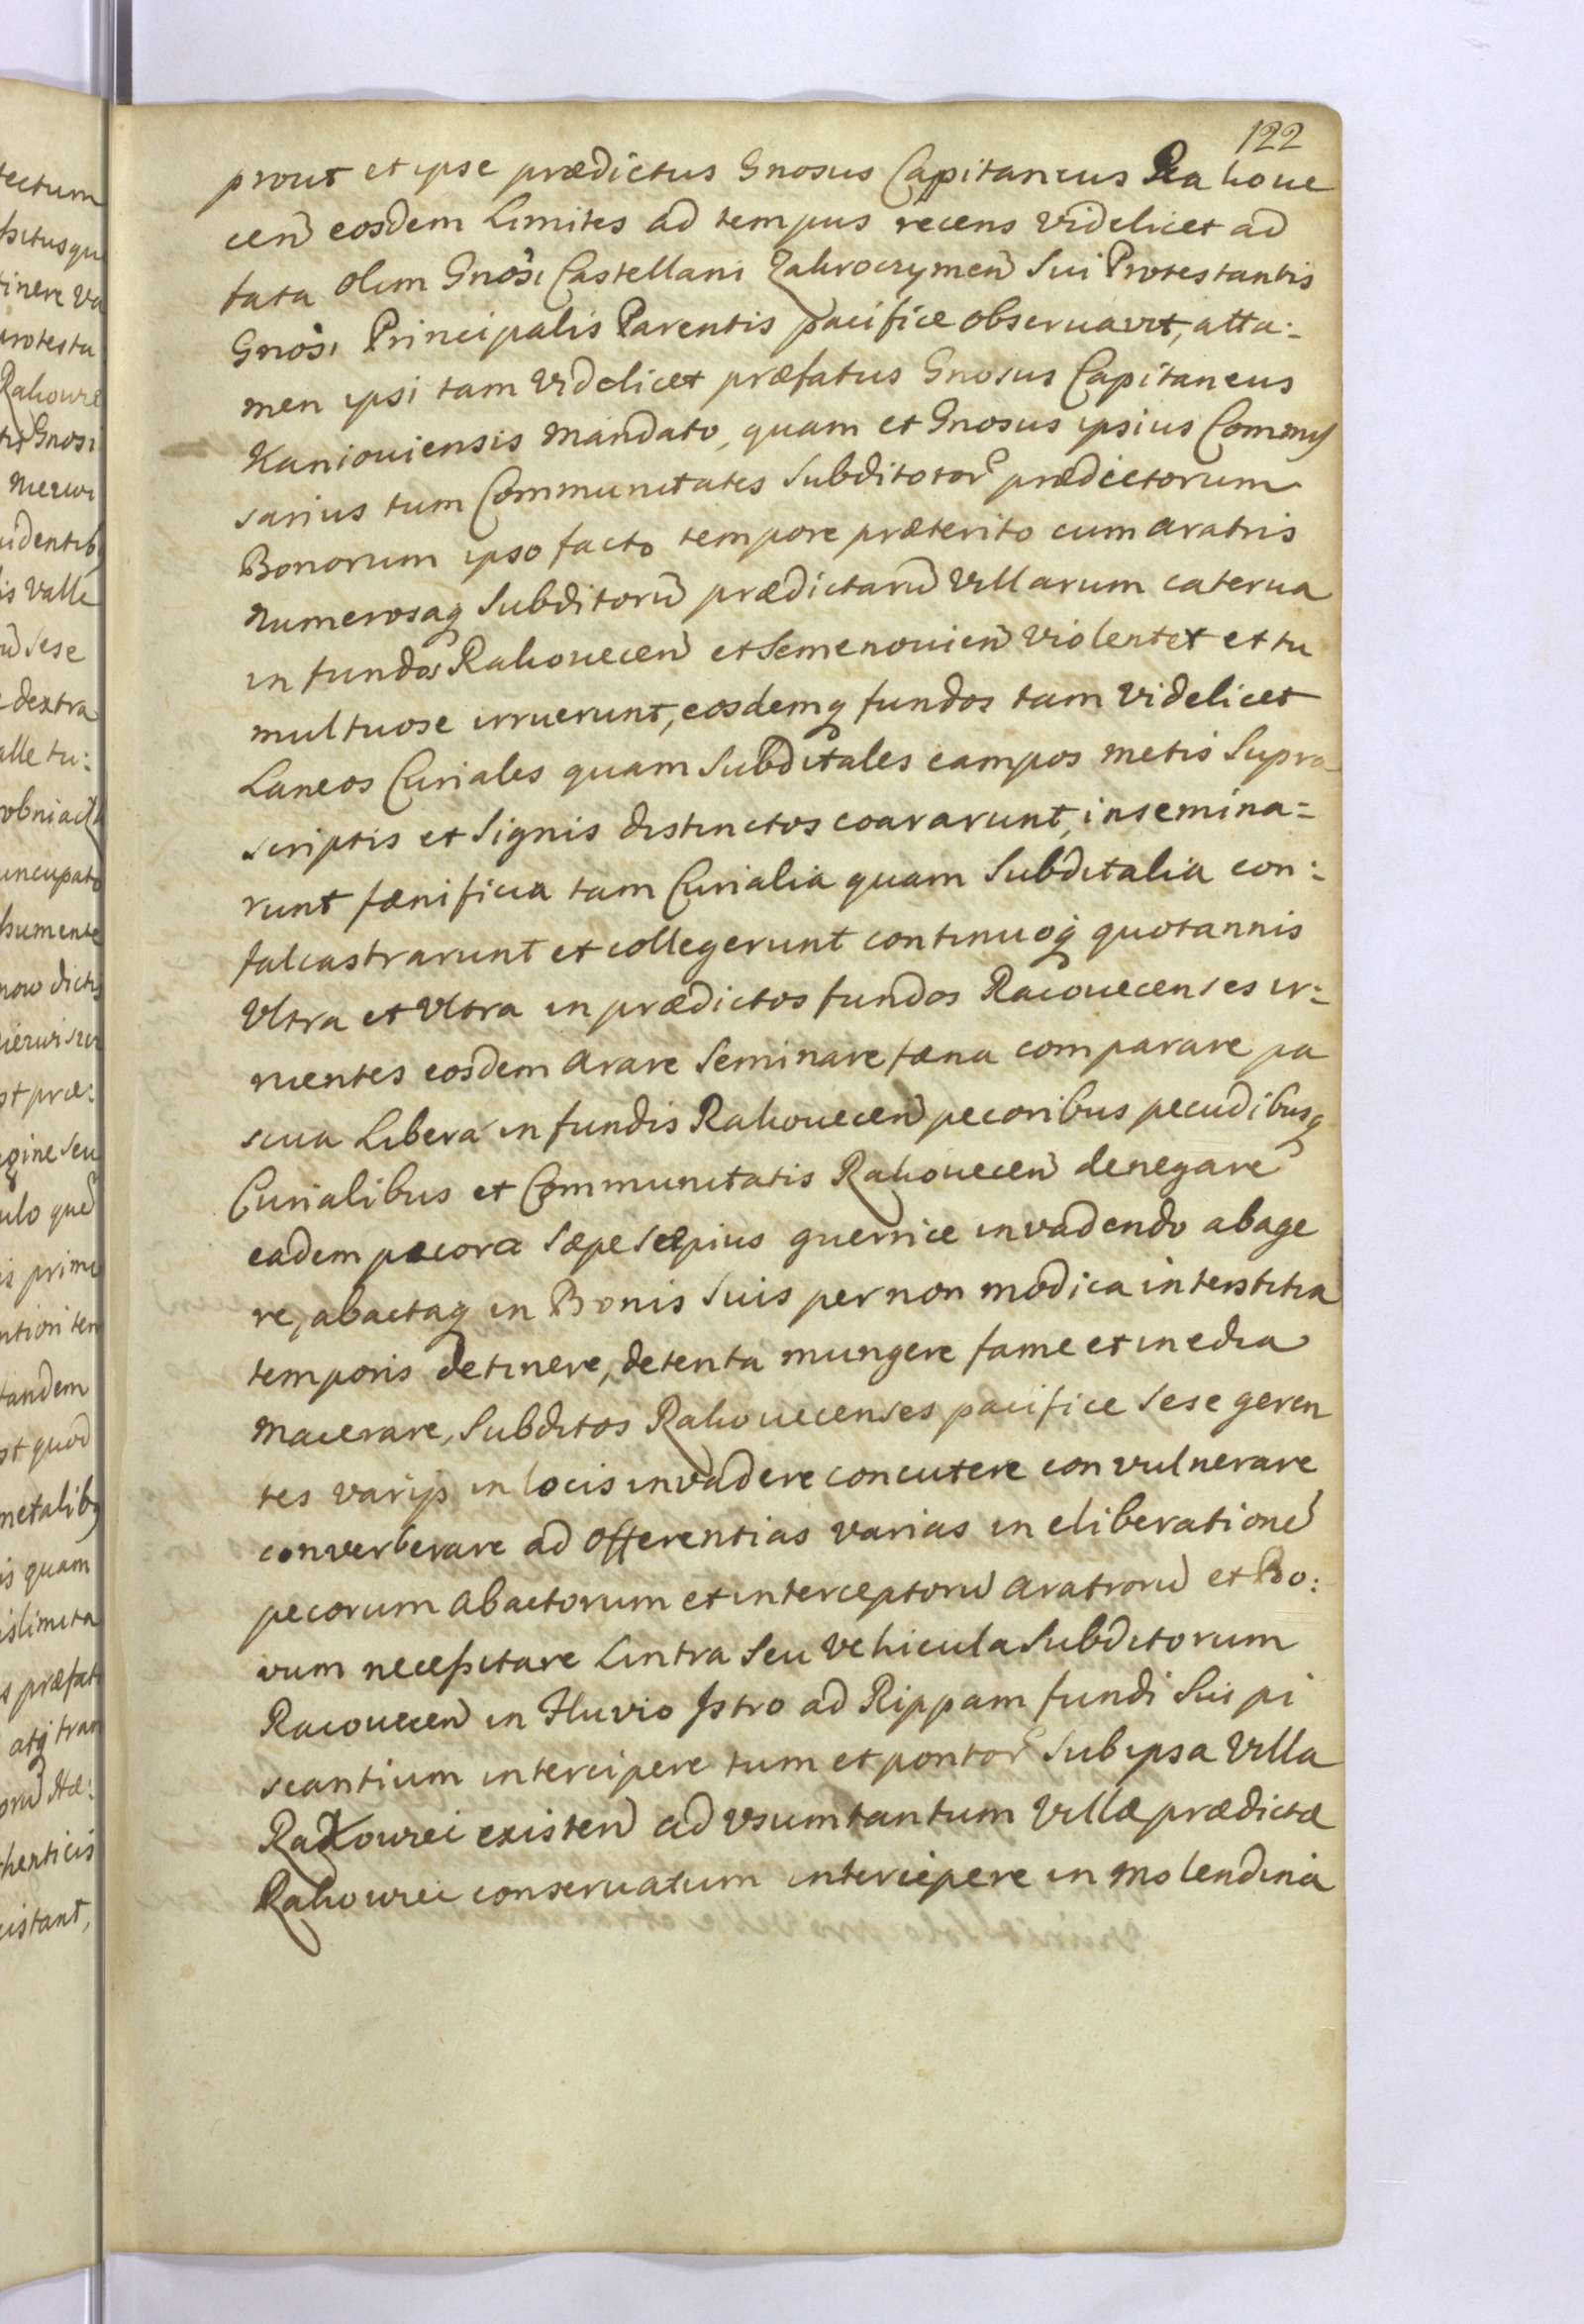 122
prout et ipse prædictus Gnosus Capitaneus Rahoue
cen̄ eosdem Limites ad tempus recens videlicet ad
fata olim Gnosi Castellani Zakroczymen̄ Sui Protestantis
Gnosi Principalis Parentis pacifice observavit, atta:
men ipsi tam Videlicet præfatus Gnosus Capitaneus
Kaniouiensis mandato, quam et Gnosus ipsius Commis
sarius tum Communitates Subditotor prædictorum
Bonorum ipso facto tempore præterito cum aratris
numerosaq Subditorū prædictarū Villarum caterua
in fundos Rahouecen̄ et Semenouien̄ violenter et tu
multuose irruerunt, eosdemq fundos tam Videlicet
Laneos Curiales quam Subditales campos metis Supra
scriptis et Signis distinctos coararunt, insemina=
runt fænificia tam Curialia quam Subditalia con:
falcastrarunt et collegerunt continuoq quotannis
Vltra et Vltra in prædictos fundos Racouecenses ir:
ruentes eosdem arare Seminare fæna comparare pa
scua Libera in fundis Rahouecen̄ pecoribus pecudibusq
Curialibus et Communitatis Rahouecen̄ denegare
eadem pecora Sæpe Sæpius guerrice invadendo abage
re, abactaq in Bonis Suis per non modica interstitia
temporis detinere, detenta mungere fame et inedia
Macerare, Subditos Rahouecenses pacifice Sese geren
tes varijs in locis invadere concutere convulnerare
converberare ad offerentias varias in eliberationē
pecorum abactorum et interceptorū aratrorū et Bo:
vum necessitare Lintra Seu Vehicula Subditorum
Racouecen̄ in Fluvio Istro ad Rippam fundi Sui pi
scantium intercipere tum et pontor Sub ipsa Villa
Rakowei existen̄ ad Vsum tantum Villæ prædictæ
Rahowei conseruatum intercipere in molendina